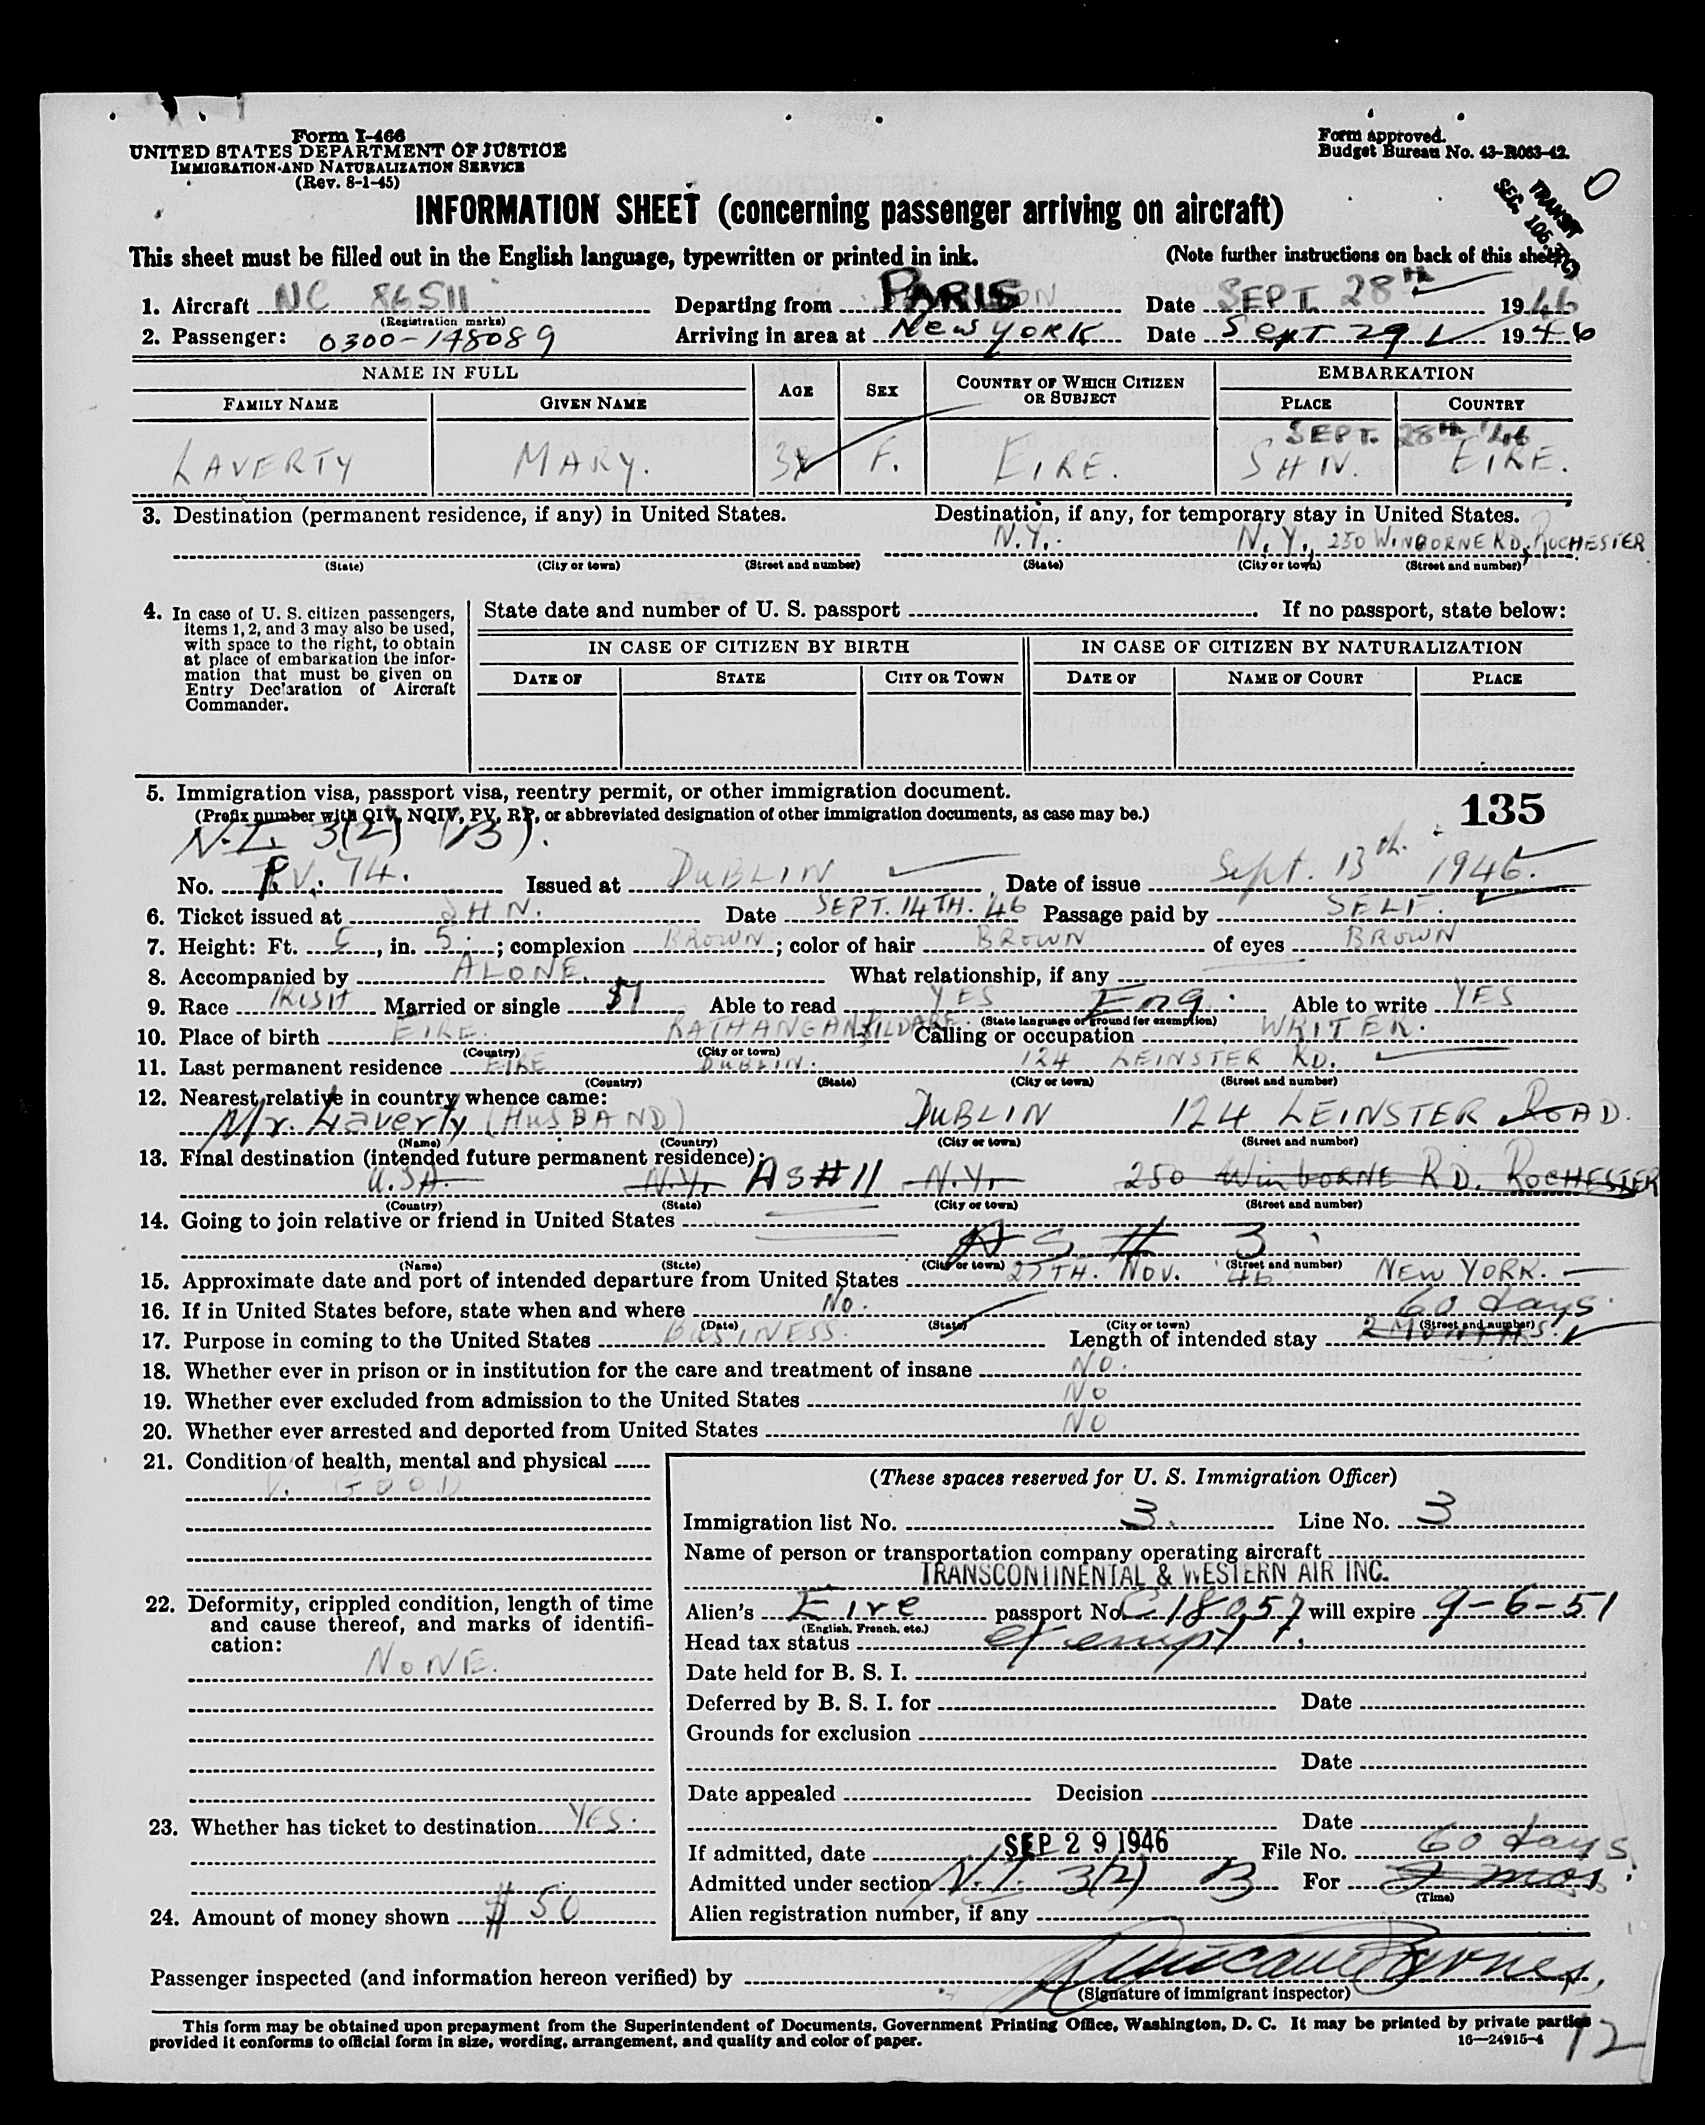 Form I-466
UNITED STATES DEPARTMENT OF JUSTICE
IMMIGRATION AND NATURALIZATION SERVICE
(Rev. 8-1-45)
Form approved.
Budget Bureau No. 43-R063-42.
TRANSIT
SEC. 105.3(c)
0
INFORMATION SHEET (concerning passenger arriving on aircraft)
This sheet must be filled out in the English language, typewritten or printed in ink. (Note further instructions on back of this sheet)
1. Aircraft NC 86511 Departing from PARIS Date SEPT. 28th 1946
(Registration marks)
2. Passenger: 0300-148089 Arriving in area at New York Date Sept 29 1946
NAME IN FULL AGE SEX COUNTRY OF WHICH CITIZEN OR SUBJECT EMBARKATION
FAMILY NAME GIVEN NAME PLACE COUNTRY
SEPT. 28th '46
LAVERTY MARY. F. EIRE. SHN. EIRE.
3. Destination (permanent residence, if any) in United States. Destination, if any, for temporary stay in United States.
N.Y. N.Y., 250 WINBORNE RD, ROCHESTER
(State) (City or town) (Street and number) (State) (City or town) (Street and number)
4. In case of U. S. citizen passengers, items 1, 2, and 3 may also be used, with space to the right, to obtain at place of embarkation the information that must be given on Entry Declaration of Aircraft Commander.
State date and number of U. S. passport If no passport, state below:
IN CASE OF CITIZEN BY BIRTH IN CASE OF CITIZEN BY NATURALIZATION
DATE OF STATE CITY OR TOWN DATE OF NAME OF COURT PLACE
5. Immigration visa, passport visa, reentry permit, or other immigration document.
(Prefix number with QIV, NQIV, PV, RP, or abbreviated designation of other immigration documents, as case may be.)
135
N.I. 3(2) (B).
No. PV. 74. Issued at DUBLIN Date of issue Sept. 13th. 1946.
6. Ticket issued at SHN. Date SEPT. 14TH. '46 Passage paid by SELF.
7. Height: Ft. 5, in. 5.; complexion BROWN; color of hair BROWN of eyes BROWN
8. Accompanied by ALONE. What relationship, if any
9. Race IRISH Married or single Able to read YES Eng. Able to write YES
(State language or ground for exemption)
10. Place of birth EIRE. RATHANGAN KILDARE. Calling or occupation WRITER.
(Country) (City or town)
11. Last permanent residence EIRE DUBLIN. 124 LEINSTER RD.
(Country) (State) (City or town) (Street and number)
12. Nearest relative in country whence came:
Mr. Laverty (HUSBAND) DUBLIN 124 LEINSTER ROAD.
(Name) (Country) (City or town) (Street and number)
13. Final destination (intended future permanent residence):
U.S.A. N.Y. AS #11 N.Y. 250 Winborne RD. ROCHESTER
(Country) (State) (City or town) (Street and number)
14. Going to join relative or friend in United States
AS # 3
(Name) (State) (City or town) (Street and number)
15. Approximate date and port of intended departure from United States 25TH. NOV. '46 NEW YORK.
16. If in United States before, state when and where No. 60 days.
(Date) (State) (City or town) (Street and number)
17. Purpose in coming to the United States BUSINESS. Length of intended stay 2 MONTHS.
18. Whether ever in prison or in institution for the care and treatment of insane NO.
19. Whether ever excluded from admission to the United States NO
20. Whether ever arrested and deported from United States NO
21. Condition of health, mental and physical
V. GOOD
22. Deformity, crippled condition, length of time and cause thereof, and marks of identification:
NONE.
23. Whether has ticket to destination YES.
24. Amount of money shown $50
(These spaces reserved for U. S. Immigration Officer)
Immigration list No. 3. Line No. 3
Name of person or transportation company operating aircraft
TRANSCONTINENTAL & WESTERN AIR INC.
Alien's Eire passport No. C 18057 will expire 9-6-51
(English, French, etc.)
Head tax status exempt
Date held for B. S. I.
Deferred by B. S. I. for Date
Grounds for exclusion
Date
Date appealed Decision
Date
If admitted, date SEP 29 1946 File No. 60 days.
Admitted under section N.I. 3(2) B For 2 mos.
(Time)
Alien registration number, if any
Passenger inspected (and information hereon verified) by
(Signature of immigrant inspector)
This form may be obtained upon prepayment from the Superintendent of Documents, Government Printing Office, Washington, D. C. It may be printed by private parties
provided it conforms to official form in size, wording, arrangement, and quality and color of paper. 16—24915-4
12